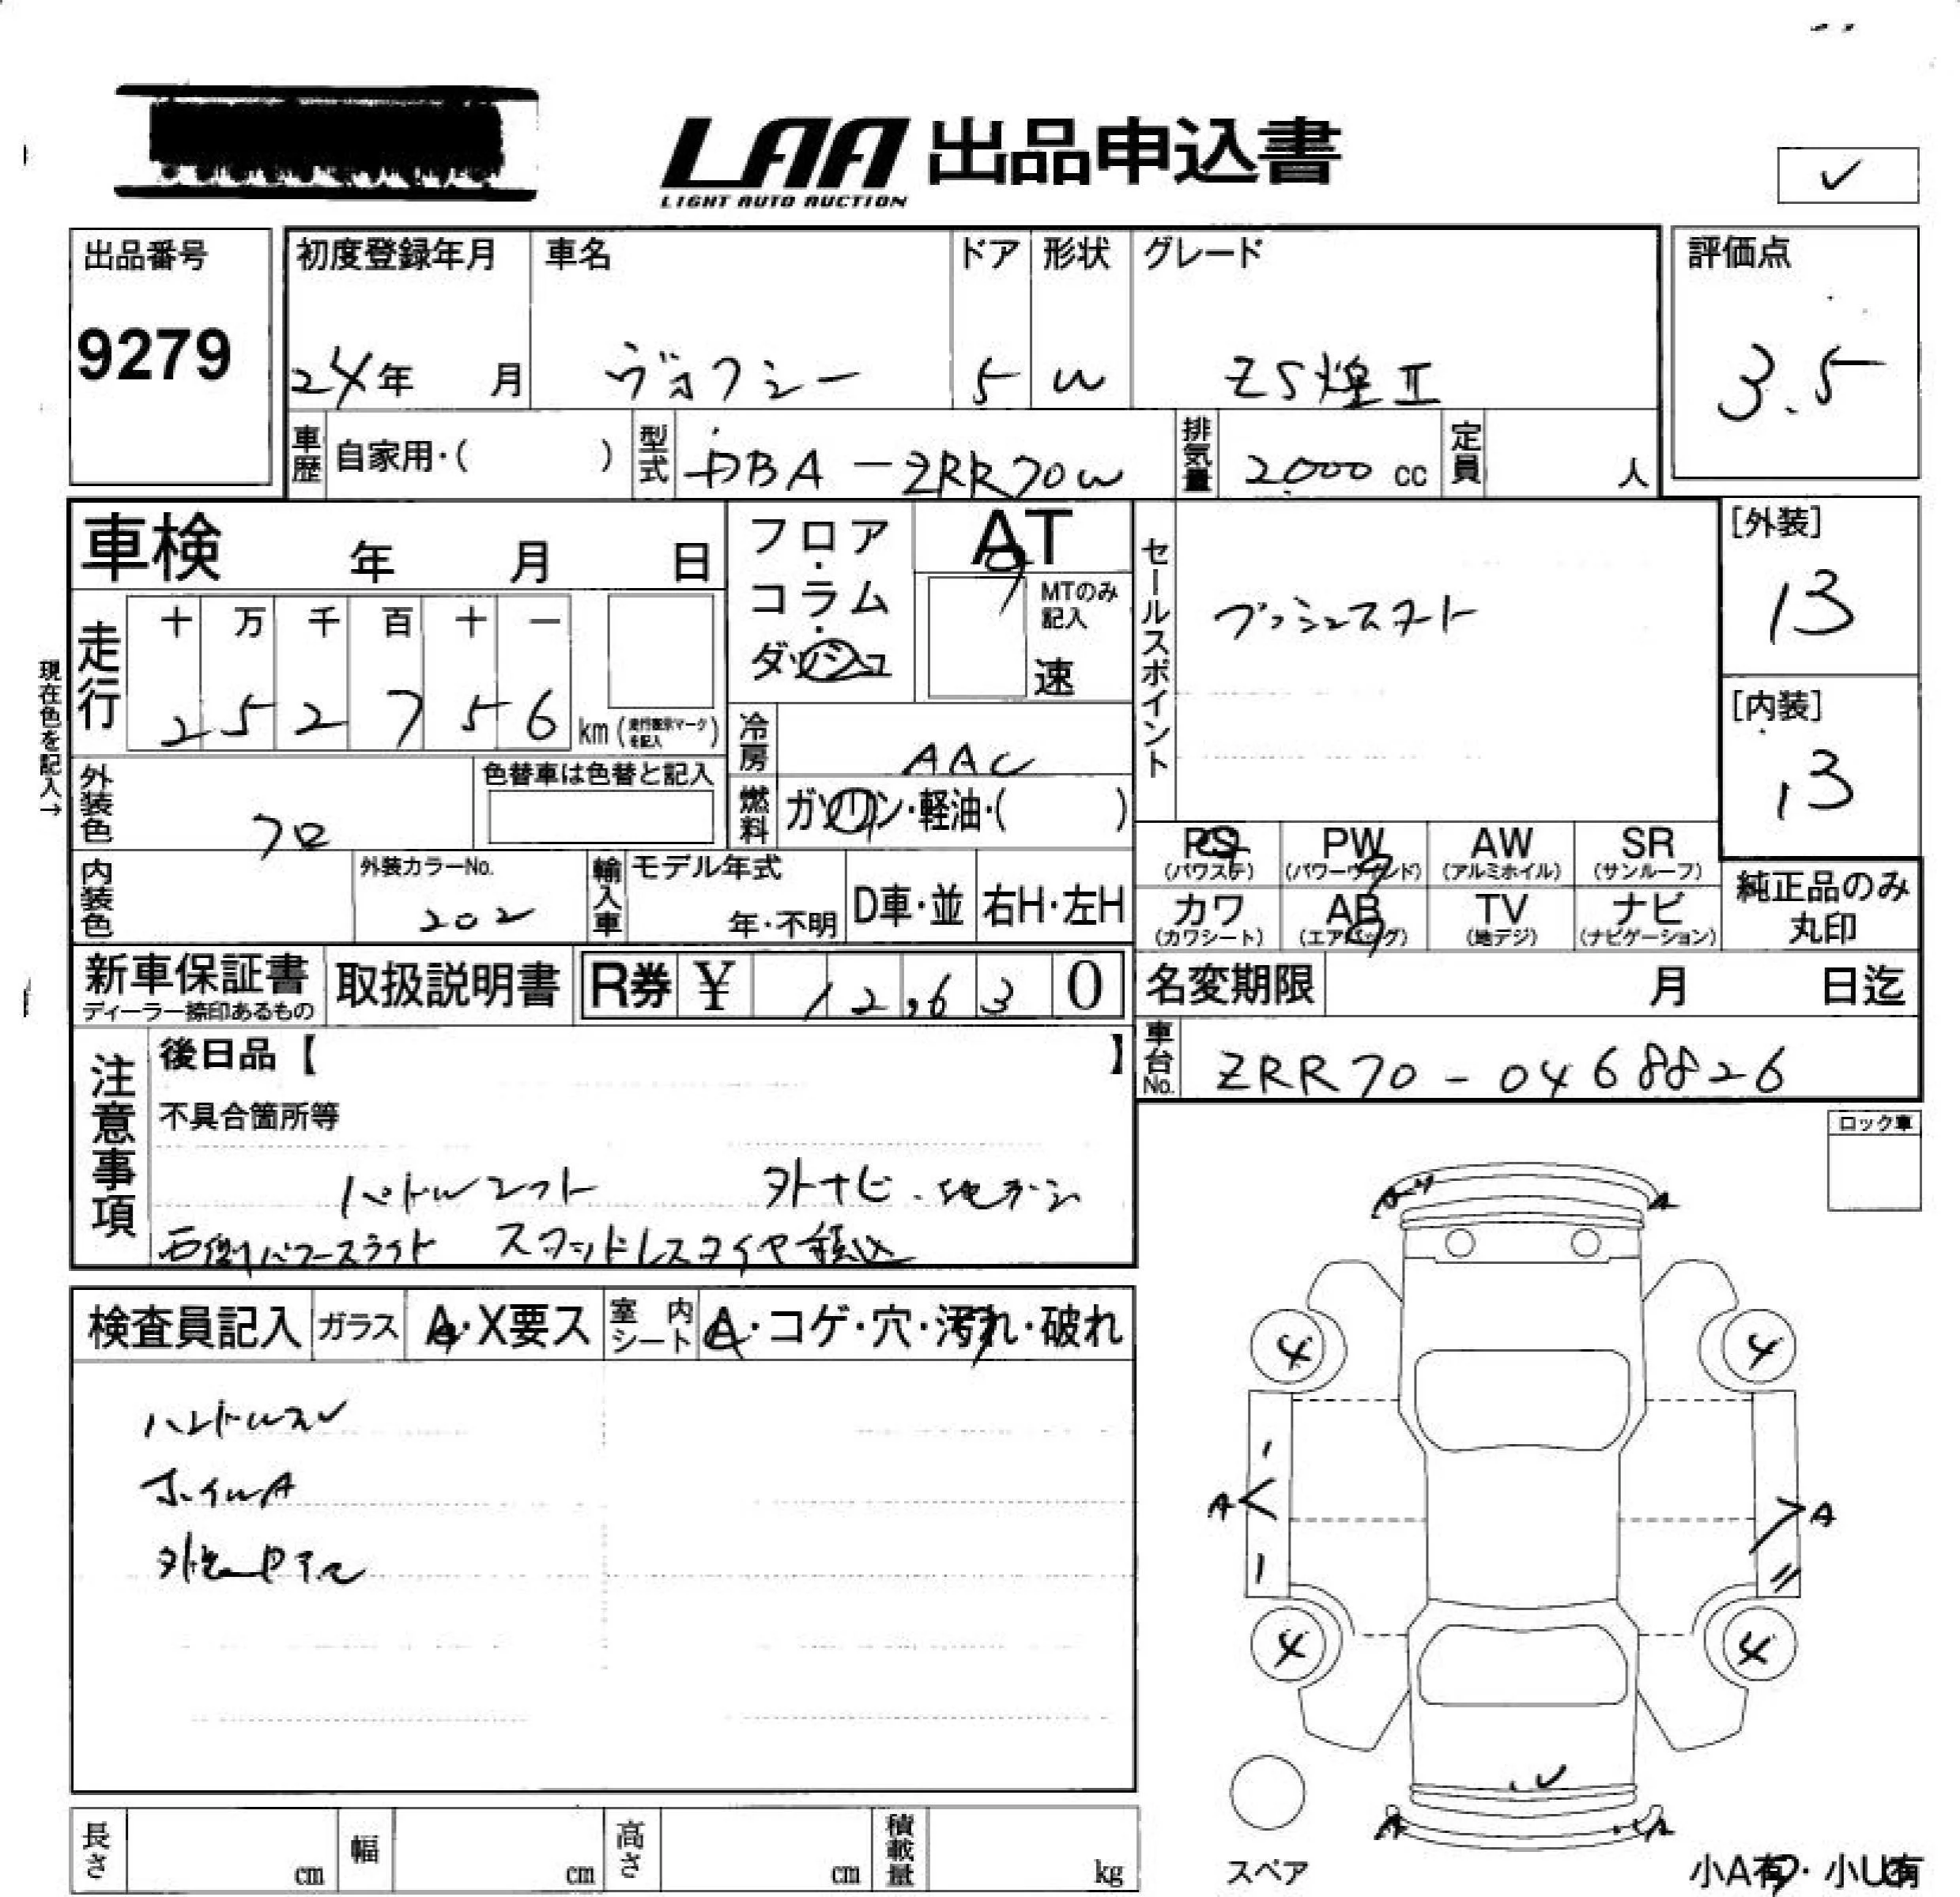 LAA 出品申込書
LIGHT AUTO AUCTION
✓
出品番号
9279
初度登録年月 車名 ドア 形状 グレード
24年 月 ヴォクシー 5 W ZS煌Ⅱ
評価点
3.5
車歴 自家用・( ) 型式 DBA-ZRR70W 排気量 2000 cc 定員 人
車検 年 月 日
フロア・コラム・ダッシュ
AT
MTのみ記入
速
セールスポイント
プッシュスタート
[外装]
13
[内装]
13
現在色を記入→
走行 十 万 千 百 十 一
252756 km (走行表示マークを記入)
冷房 AAC
外装色 クロ
色替車は色替と記入
燃料 ガソリン・軽油・( )
PS (パワステ) PW (パワーウインド) AW (アルミホイル) SR (サンルーフ)
カワ (カワシート) AB (エアバッグ) TV (地デジ) ナビ (ナビゲーション)
純正品のみ丸印
内装色
外装カラーNo.
202
輸入車 モデル年式 年・不明 D車・並 右H・左H
新車保証書
ディーラー捺印あるもの
取扱説明書 R券 ¥ 12,630
名変期限 月 日迄
車台No. ZRR70-0468826
注意事項
後日品【 】
不具合箇所等
パドルシフト 外ナビ・地デジ
右側パワースライド スタッドレスタイヤ積込
ロック車
検査員記入 ガラス A・X要ス 室内シート A・コゲ・穴・汚れ・破れ
ハンドルスレ
ホイルA
A A
4 4
A A
4 4
A A
スペア
小A有・小U有
長さ cm 幅 cm 高さ cm 積載量 kg